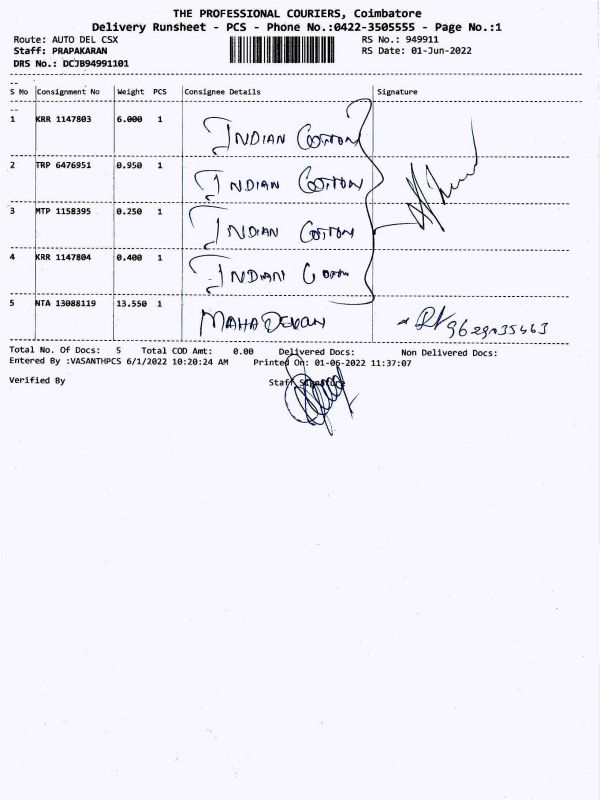 THE PROFESSIONAL COURIERS, Coimbatore
Delivery Runsheet - PCS - Phone No.:0422-3505555 - Page No.:1
Route: AUTO DEL CSX RS No.: 949911
Staff: PRAPAKARAN RS Date: 01-Jun-2022
DRS No.: DCJB94991101
S No Consignment No Weight PCS Consignee Details Signature
1 KRR 1147803 6.000 1 INDIAN COTTON
2 TRP 6476951 0.950 1 INDIAN COTTON
3 MTP 1158395 0.250 1 INDIAN COTTON
4 KRR 1147804 0.400 1 INDIAN
5 NTA 13088119 13.550 1 MAHADEVAN
Total No. Of Docs: 5 Total COD Amt: 0.00 Delivered Docs: Non Delivered Docs:
Entered By :VASANTHPCS 6/1/2022 10:20:24 AM Printed On: 01-06-2022 11:37:07
Verified By Staff Signature